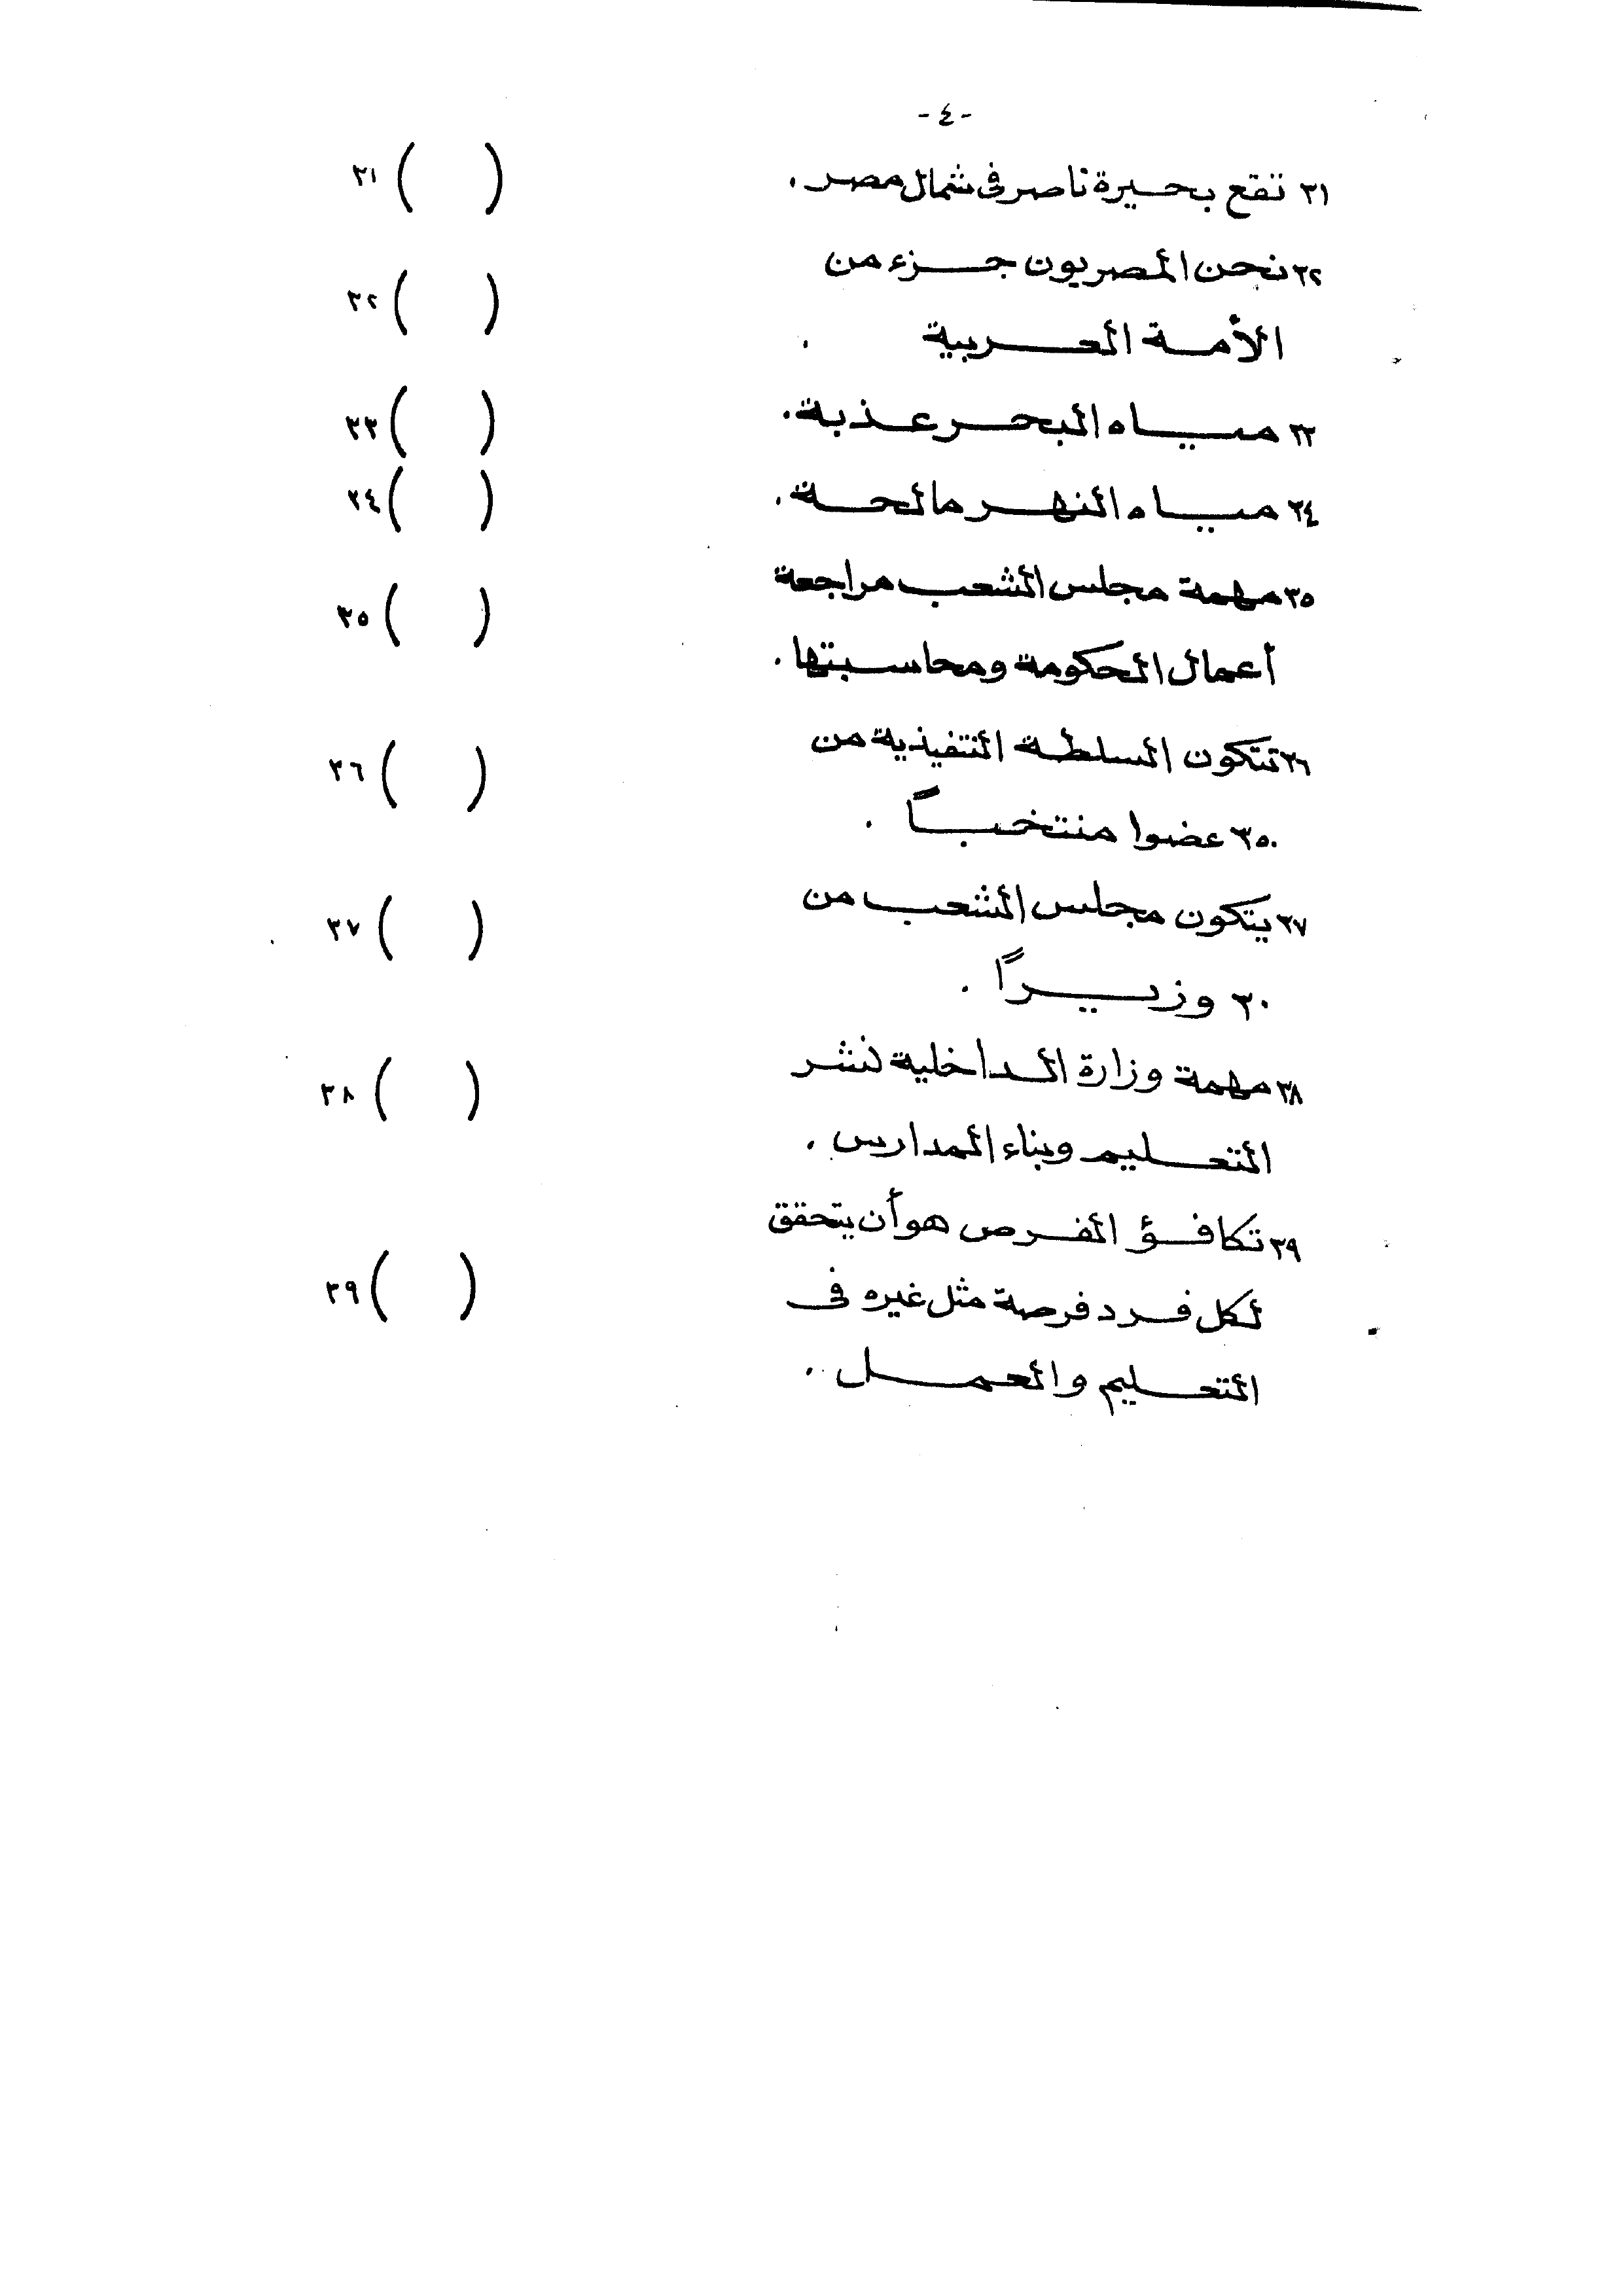 - ٤ -
٣١ تقع بحيرة ناصر فى شمال مصر . ( ) ٣١
٣٢ نحن المصريون جزء من
الأمة العربية . ( ) ٣٢
٣٣ مياه البحر عذبة . ( ) ٣٣
٣٤ مياه النهر مالحة . ( ) ٣٤
٣٥ مهمة مجلس الشعب مراجعة
أعمال الحكومة ومحاسبتها . ( ) ٣٥
٣٦ تتكون السلطة التنفيذية من
٣٥٠ عضوا منتخباً . ( ) ٣٦
٣٧ يتكون مجلس الشعب من
٣٠ وزيراً . ( ) ٣٧
٣٨ مهمة وزارة الداخلية نشر
التعليم وبناء المدارس . ( ) ٣٨
٣٩ تكافؤ الفرص هو أن يتحقق
لكل فرد فرصة مثل غيره فى ( ) ٣٩
التعليم والعمل .